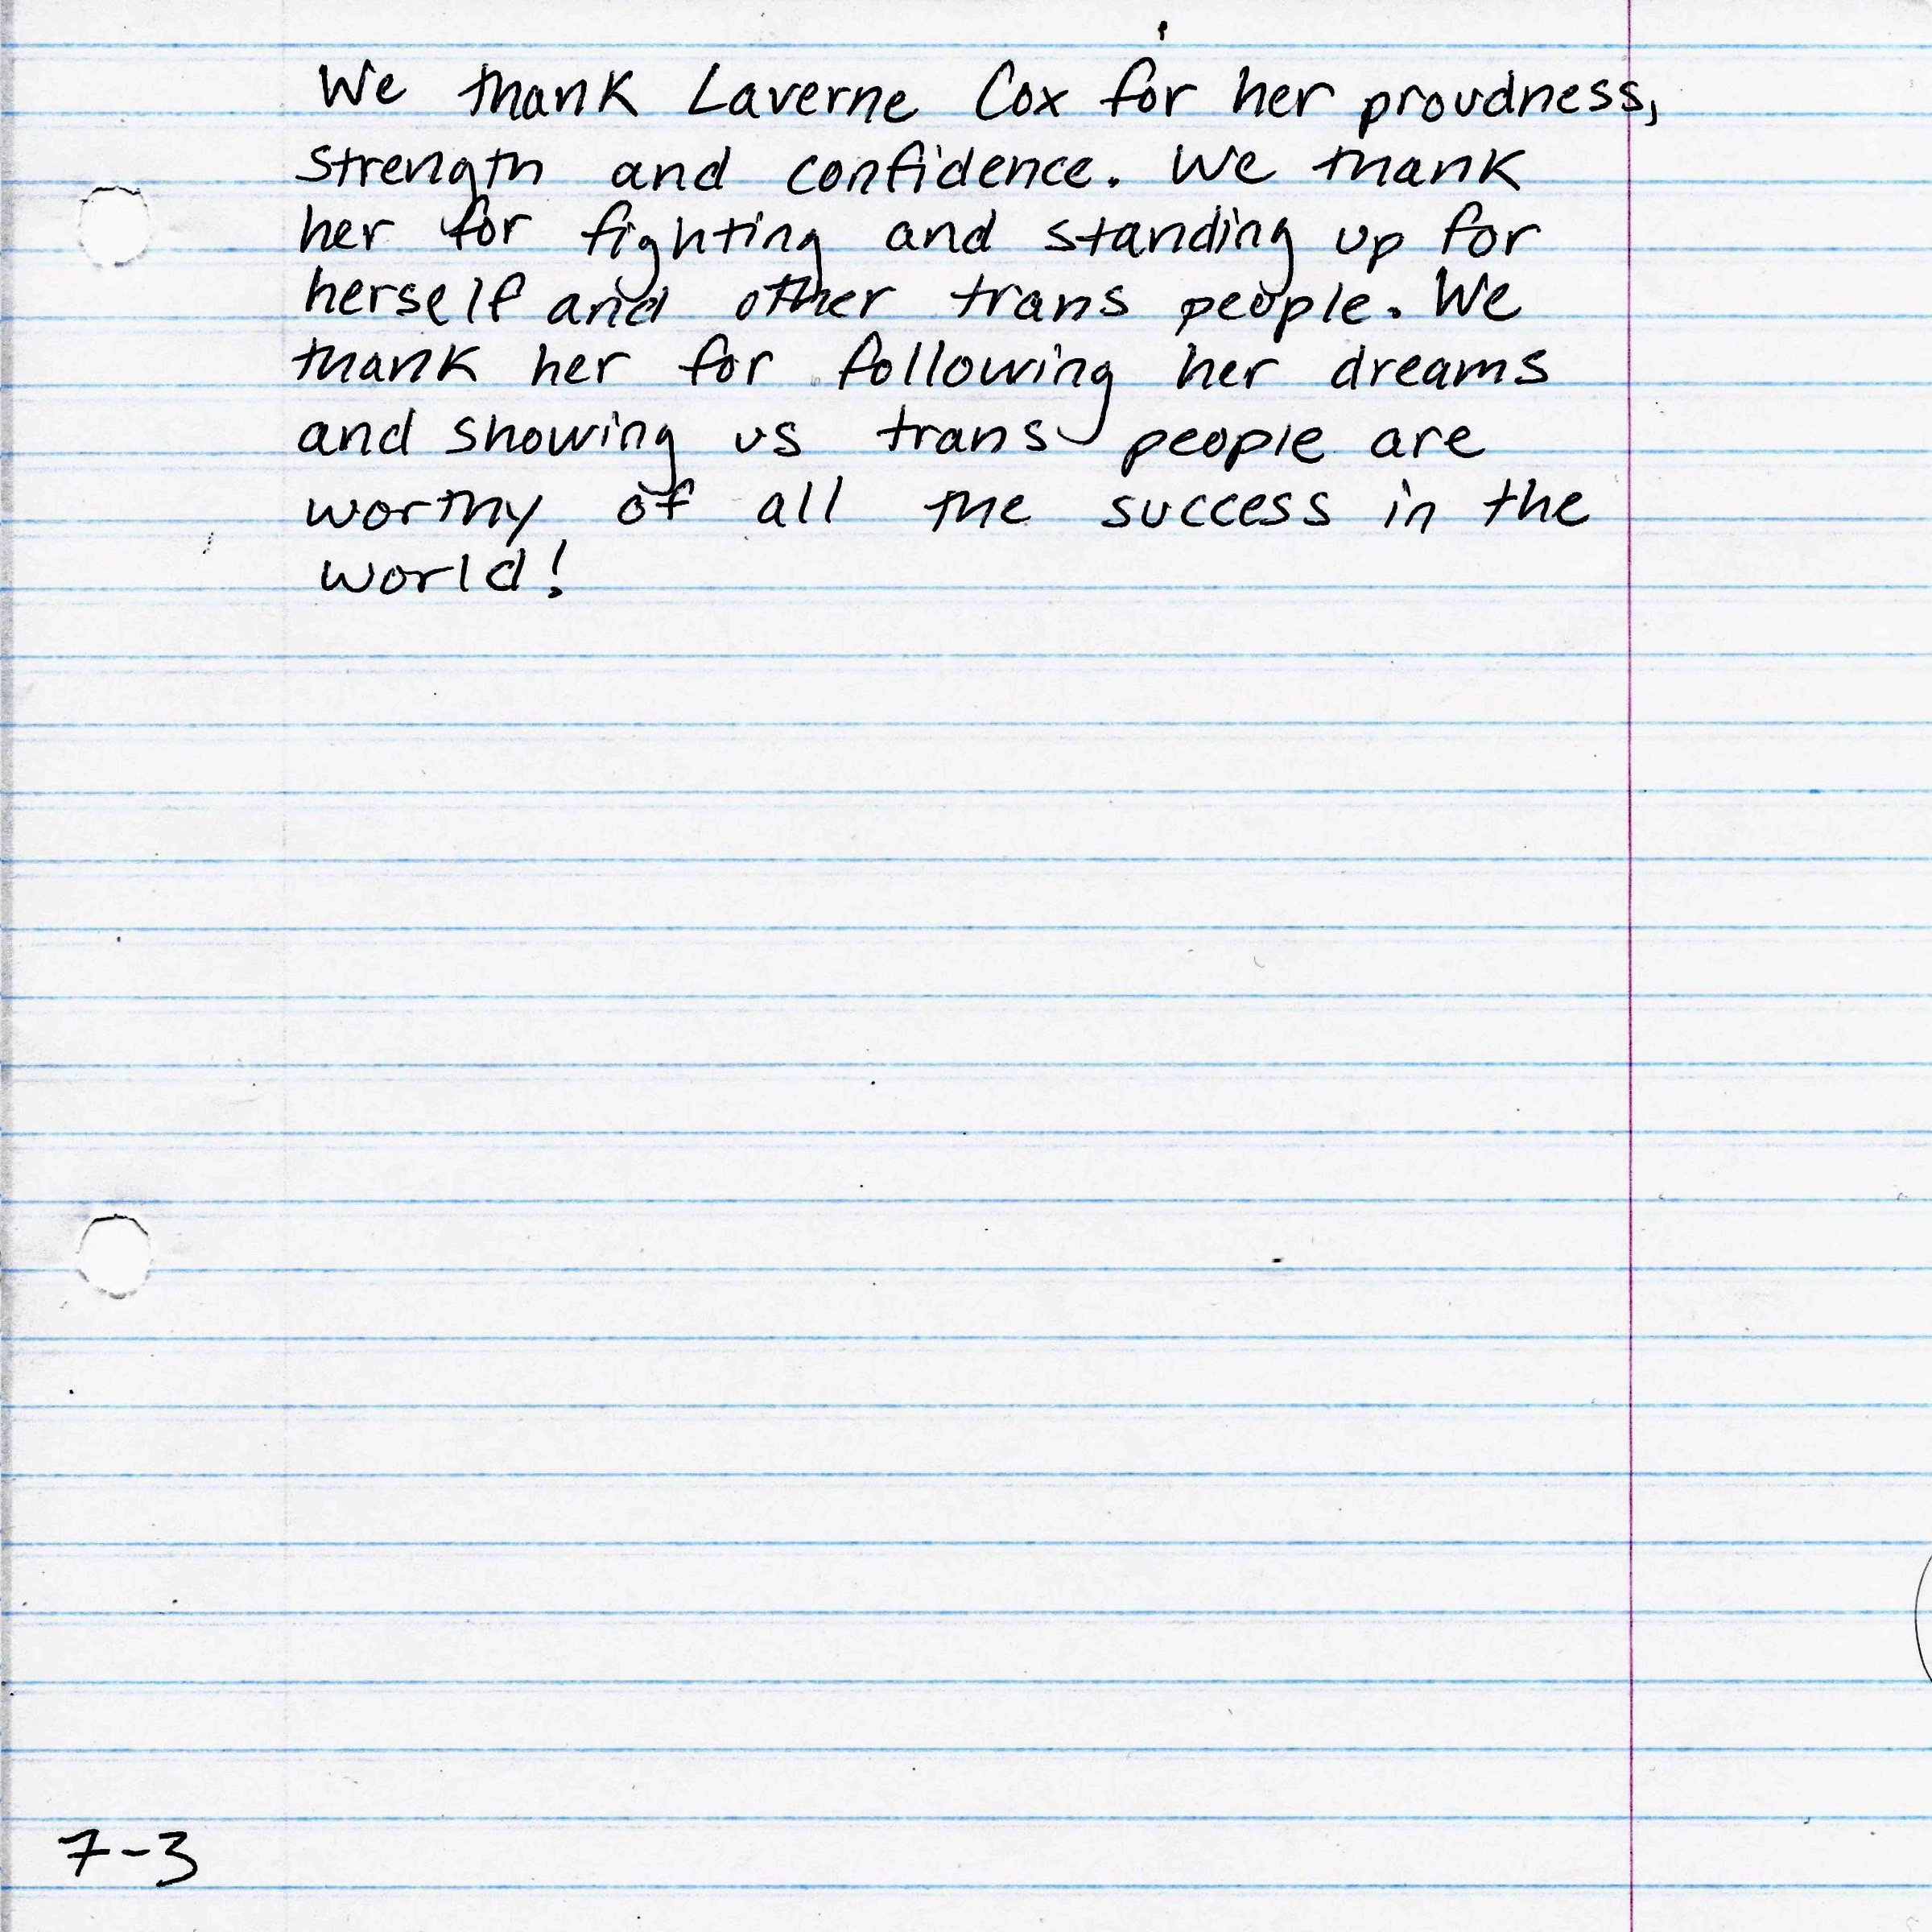 We thank Laverne Cox for her proudness,
strength and confidence. We thank
her for fighting and standing up for
herself and other trans people. We
thank her for following her dreams
and showing us trans people are
worthy of all the success in the
world!
7-3